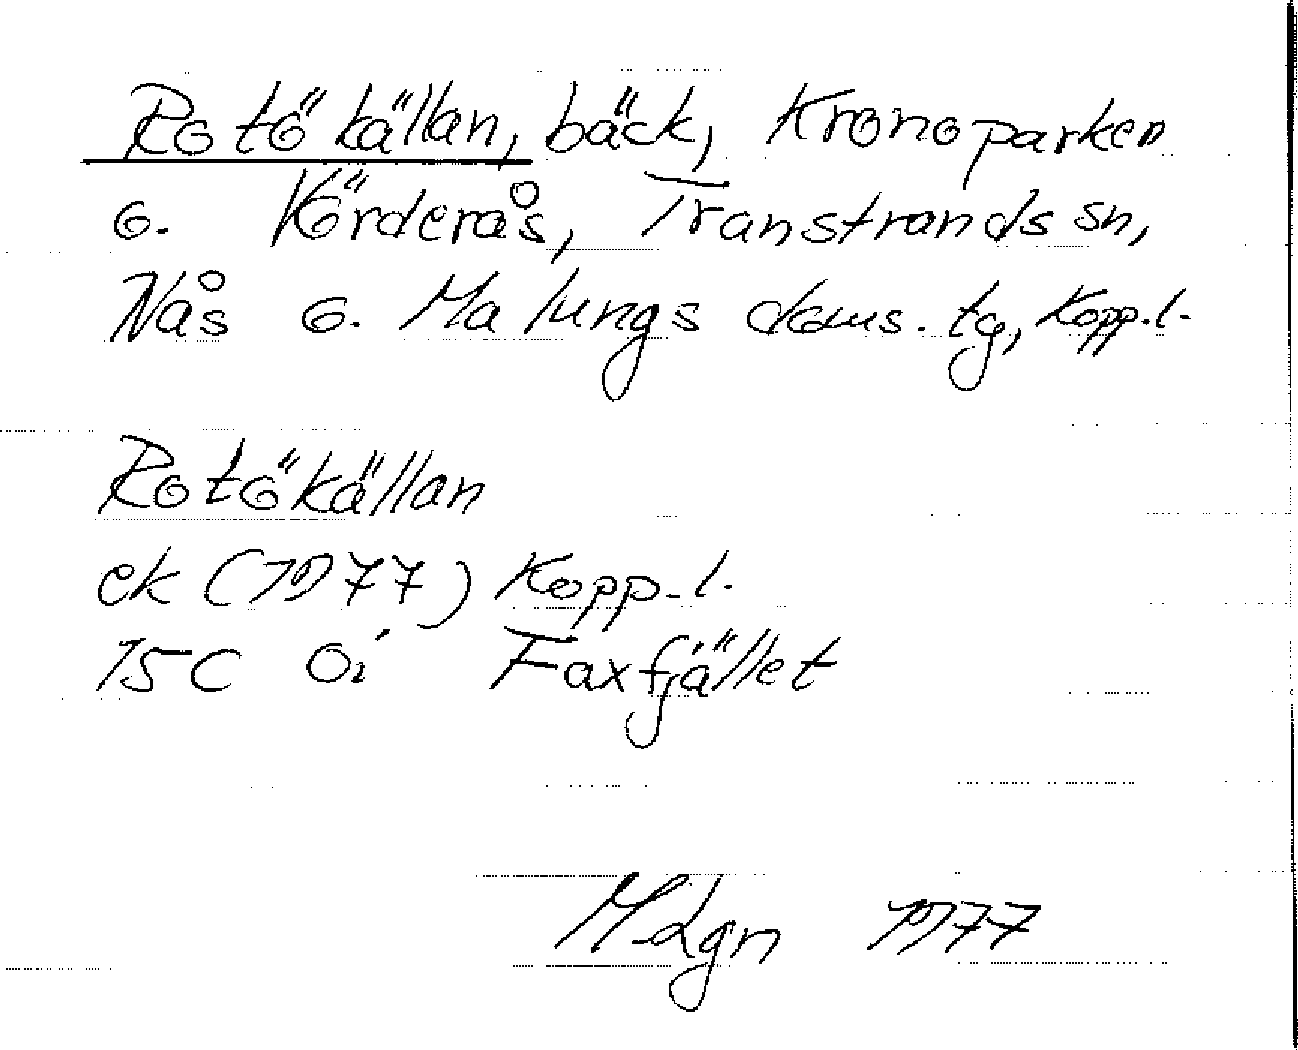 Rotökällan, bäck, Kronoparken
o. Körderås, Transtrands sn,
Nås o. Malungs doms. tg, Kopp.l.
Rotökällan
ek (1977) Kopp.l.
15C 0i Faxfjället
M.Lgn 1977